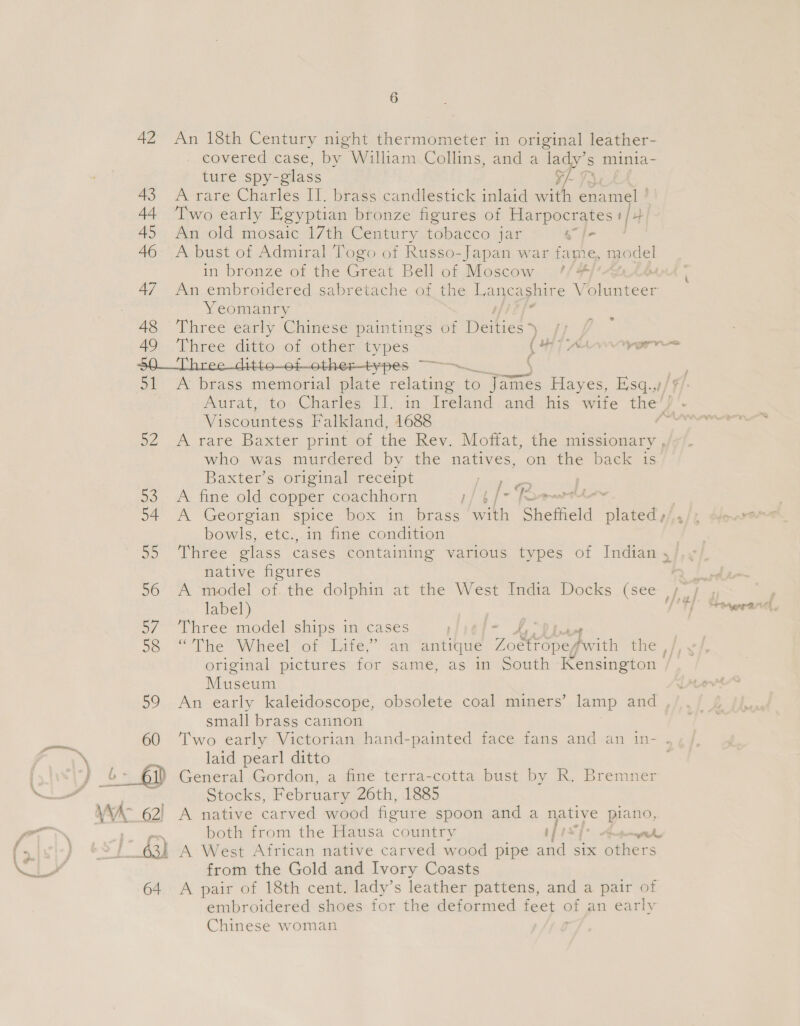 6
42 An 18th Century night thermometer in original leather-
covered case, by William Collins, and a lady's minia-
ture spy-glass
43 A rare Charles II. brass candlestick inlaid with enamel
44 Two early Egyptian bronze figures of Harpocrates
45 An old mosaic 17th Century tobacco jar
46 A bust of Admiral Togo of Russo-Japan war fame, model
in bronze of the Great Bell of Moscow
47 An embroidered sabretache of the Lancashire Volunteer
Yeomanry
48 Three early Chinese paintings of Deities
49 Three ditto of other types
50 Three ditto of other types
51 A brass memorial plate relating to James Hayes, Esq.,
Aurat, to Charles II. in Ireland and his wife the
Viscountess Falkland, 1688
52 A rare Baxter print of the Rev. Moffat, the missionary
who was murdered by the natives, on the back is
Baxter's original receipt
53 A fine old copper coachhorn
54 A Georgian spice box in brass with Sheffield plated
bowls, etc., in fine condition
55 Three glass cases containing various types of Indian
native figures
56 A model of the dolphin at the West India Docks (see
label)
57 Three model ships in cases
58 "The Wheel of Life," an antique Zoetrope with the
original pictures for same, as in South Kensington
Museum
59 An early kaleidoscope, obsolete coal miners' lamp and
small brass cannon
60 Two early Victorian hand-painted face fans and an in-
laid pearl ditto
61 General Gordon, a fine terra-cotta bust by R. Bremner
Stocks, February 26th, 1885
62 A native carved wood figure spoon and a native piano,
both from the Hausa country
63 A West African native carved wood pipe and six others
from the Gold and Ivory Coasts
64 A pair of 18th cent. lady's leather pattens, and a pair of
embroidered shoes for the deformed feet of an early
Chinese woman